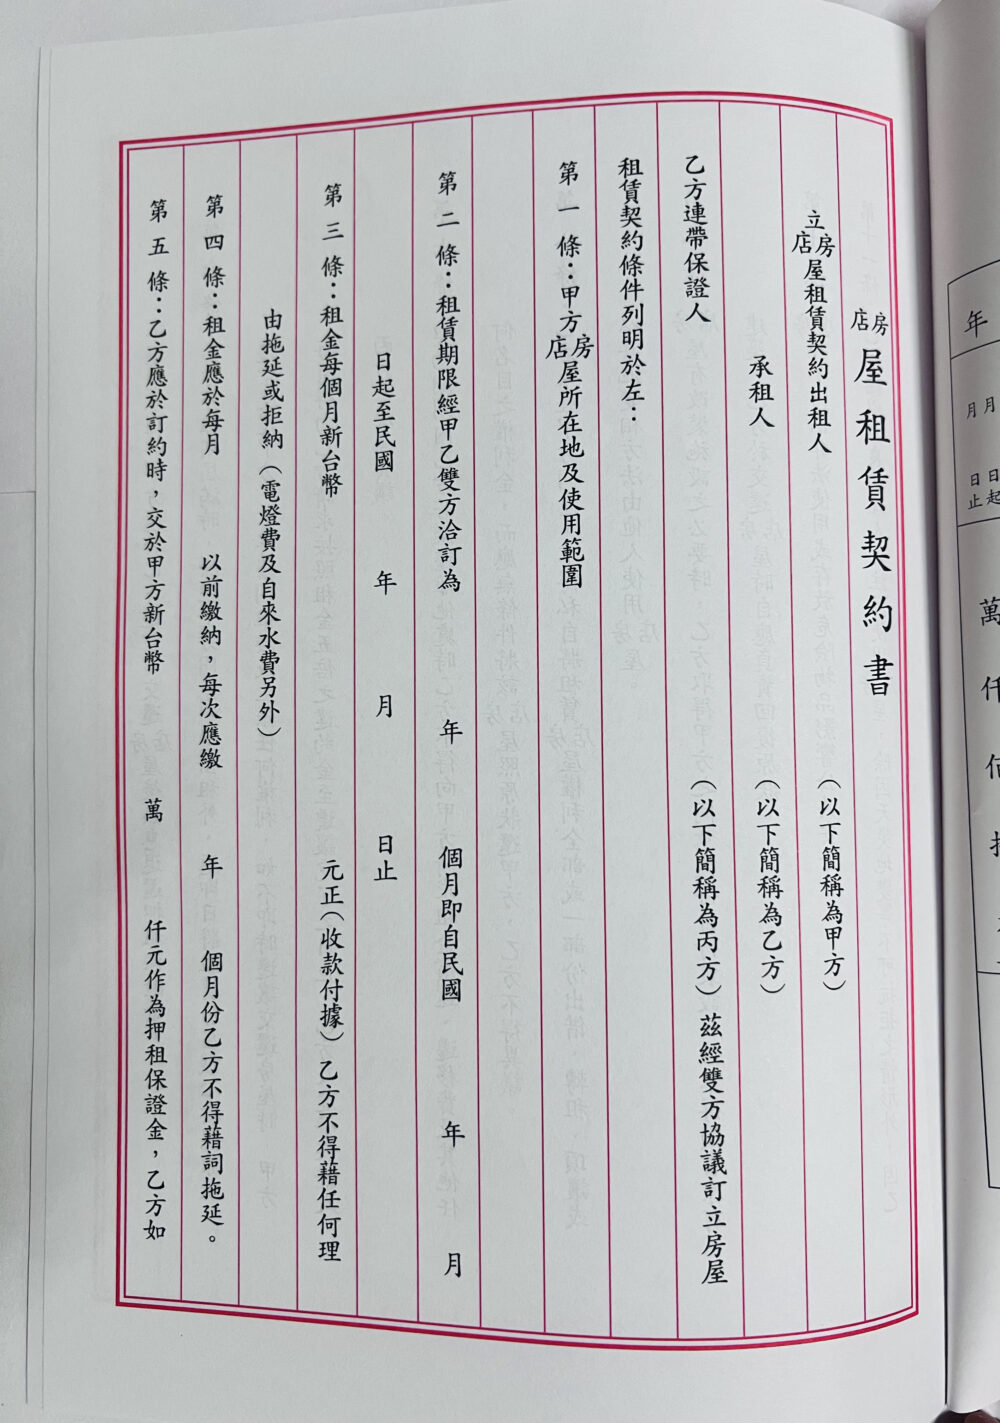 房店屋租賃契約書
立房店屋租賃契約出租人　（以下簡稱為甲方）
承租人　（以下簡稱為乙方）
乙方連帶保證人　（以下簡稱為丙方）茲經雙方協議訂立房屋
租賃契約條件列明於左：
第一條：甲方房店屋所在地及使用範圍
第二條：租賃期限經甲乙雙方洽訂為　年　個月即自民國　年　月
日起至民國　年　月　日止
第三條：租金每個月新台幣　元正（收款付據）乙方不得藉任何理
由拖延或拒納（電燈費及自來水費另外）
第四條：租金應於每月　以前繳納，每次應繳　年　個月份乙方不得藉詞拖延。
第五條：乙方應於訂約時，交於甲方新台幣　萬　仟元作為押租保證金，乙方如
年
月　日起
月　日止
萬
仟